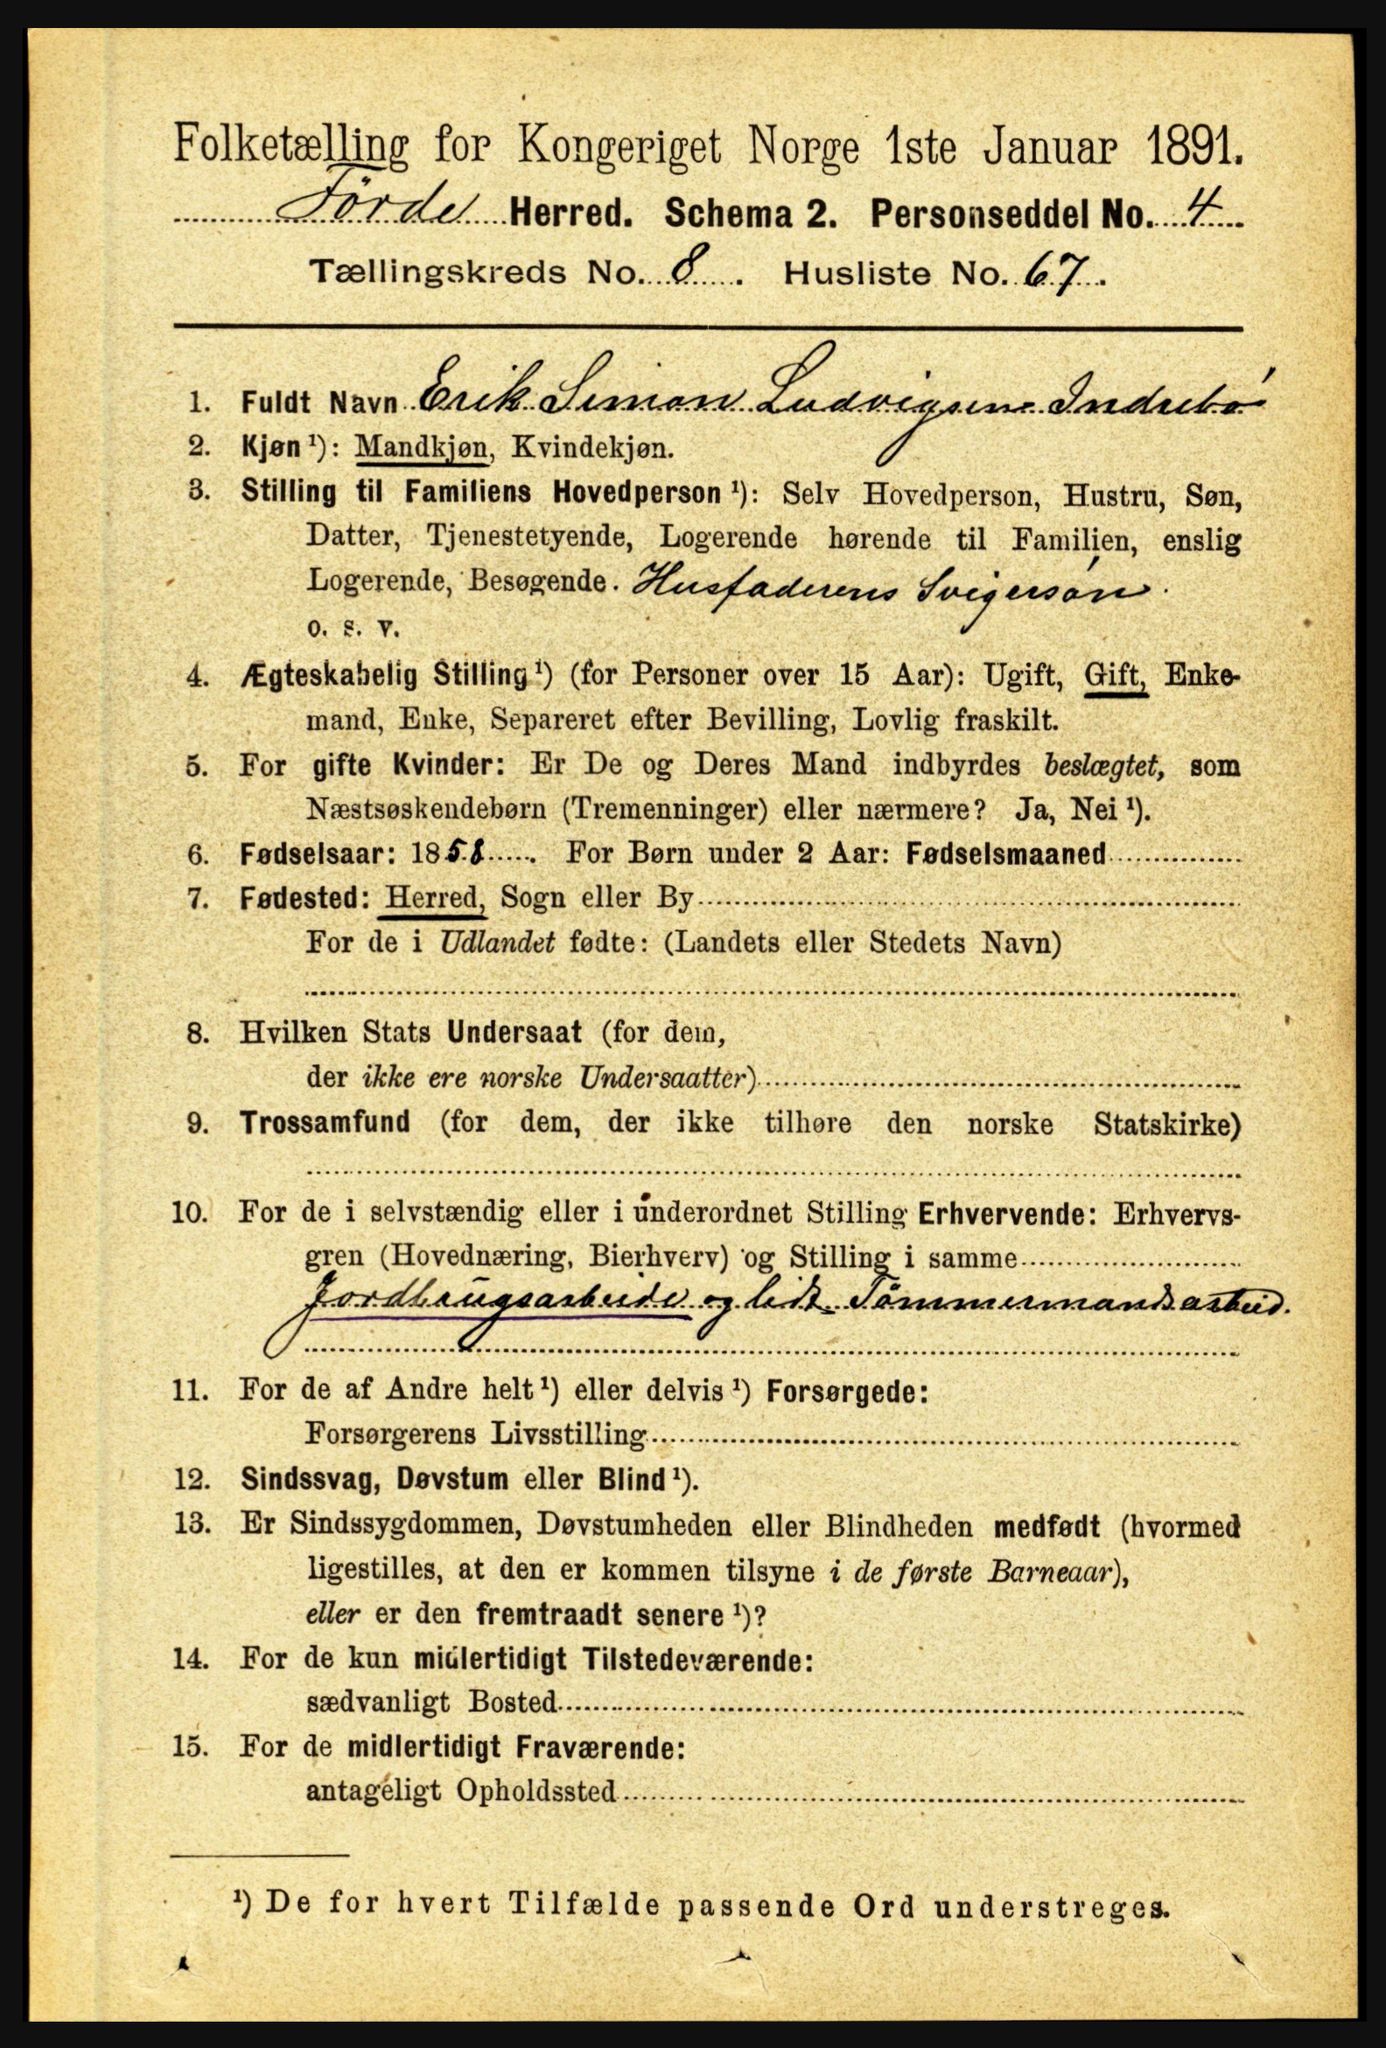 Folketælling for Kongeriget Norge 1ste Januar 1891.
Förde Herred. Schema 2. Personseddel No. 4
Tællingskreds No. 8. Husliste No. 67.
1. Fuldt Navn Erik Simon Ludvigsen Indrebö
2. Kjøn ¹): Mandkjøn, Kvindekjøn.
3. Stilling til Familiens Hovedperson ¹): Selv Hovedperson, Hustru, Søn,
Datter, Tjenestetyende, Logerende hørende til Familien, enslig
Logerende, Besøgende. Husfaderens Svigersön.
o. s. v.
4. Ægteskabelig Stilling ¹) (for Personer over 15 Aar): Ugift, Gift, Enke-
mand, Enke, Separeret efter Bevilling, Lovlig fraskilt.
5. For gifte Kvinder: Er De og Deres Mand indbyrdes beslægtet, som
Næstsøskendebørn (Tremenninger) eller nærmere? Ja, Nei ¹).
6. Fødselsaar: 1858. For Børn under 2 Aar: Fødselsmaaned
7. Fødested: Herred, Sogn eller By
For de i Udlandet fødte: (Landets eller Stedets Navn)
8. Hvilken Stats Undersaat (for dem,
der ikke ere norske Undersaatter)
9. Trossamfund (for dem, der ikke tilhøre den norske Statskirke)
10. For de i selvstændig eller i underordnet Stilling Erhvervende: Erhvervs-
gren (Hovednæring, Bierhverv) og Stilling i samme
Jordbrugsarbeide og lidt Tömmermandsarbeid.
11. For de af Andre helt ¹) eller delvis ¹) Forsørgede:
Forsørgerens Livsstilling
12. Sindssvag, Døvstum eller Blind ¹).
13. Er Sindssygdommen, Døvstumheden eller Blindheden medfødt (hvormed
ligestilles, at den er kommen tilsyne i de første Barneaar),
eller er den fremtraadt senere ¹)?
14. For de kun midlertidigt Tilstedeværende:
sædvanligt Bosted
15. For de midlertidigt Fraværende:
antageligt Opholdssted
¹) De for hvert Tilfælde passende Ord understreges.